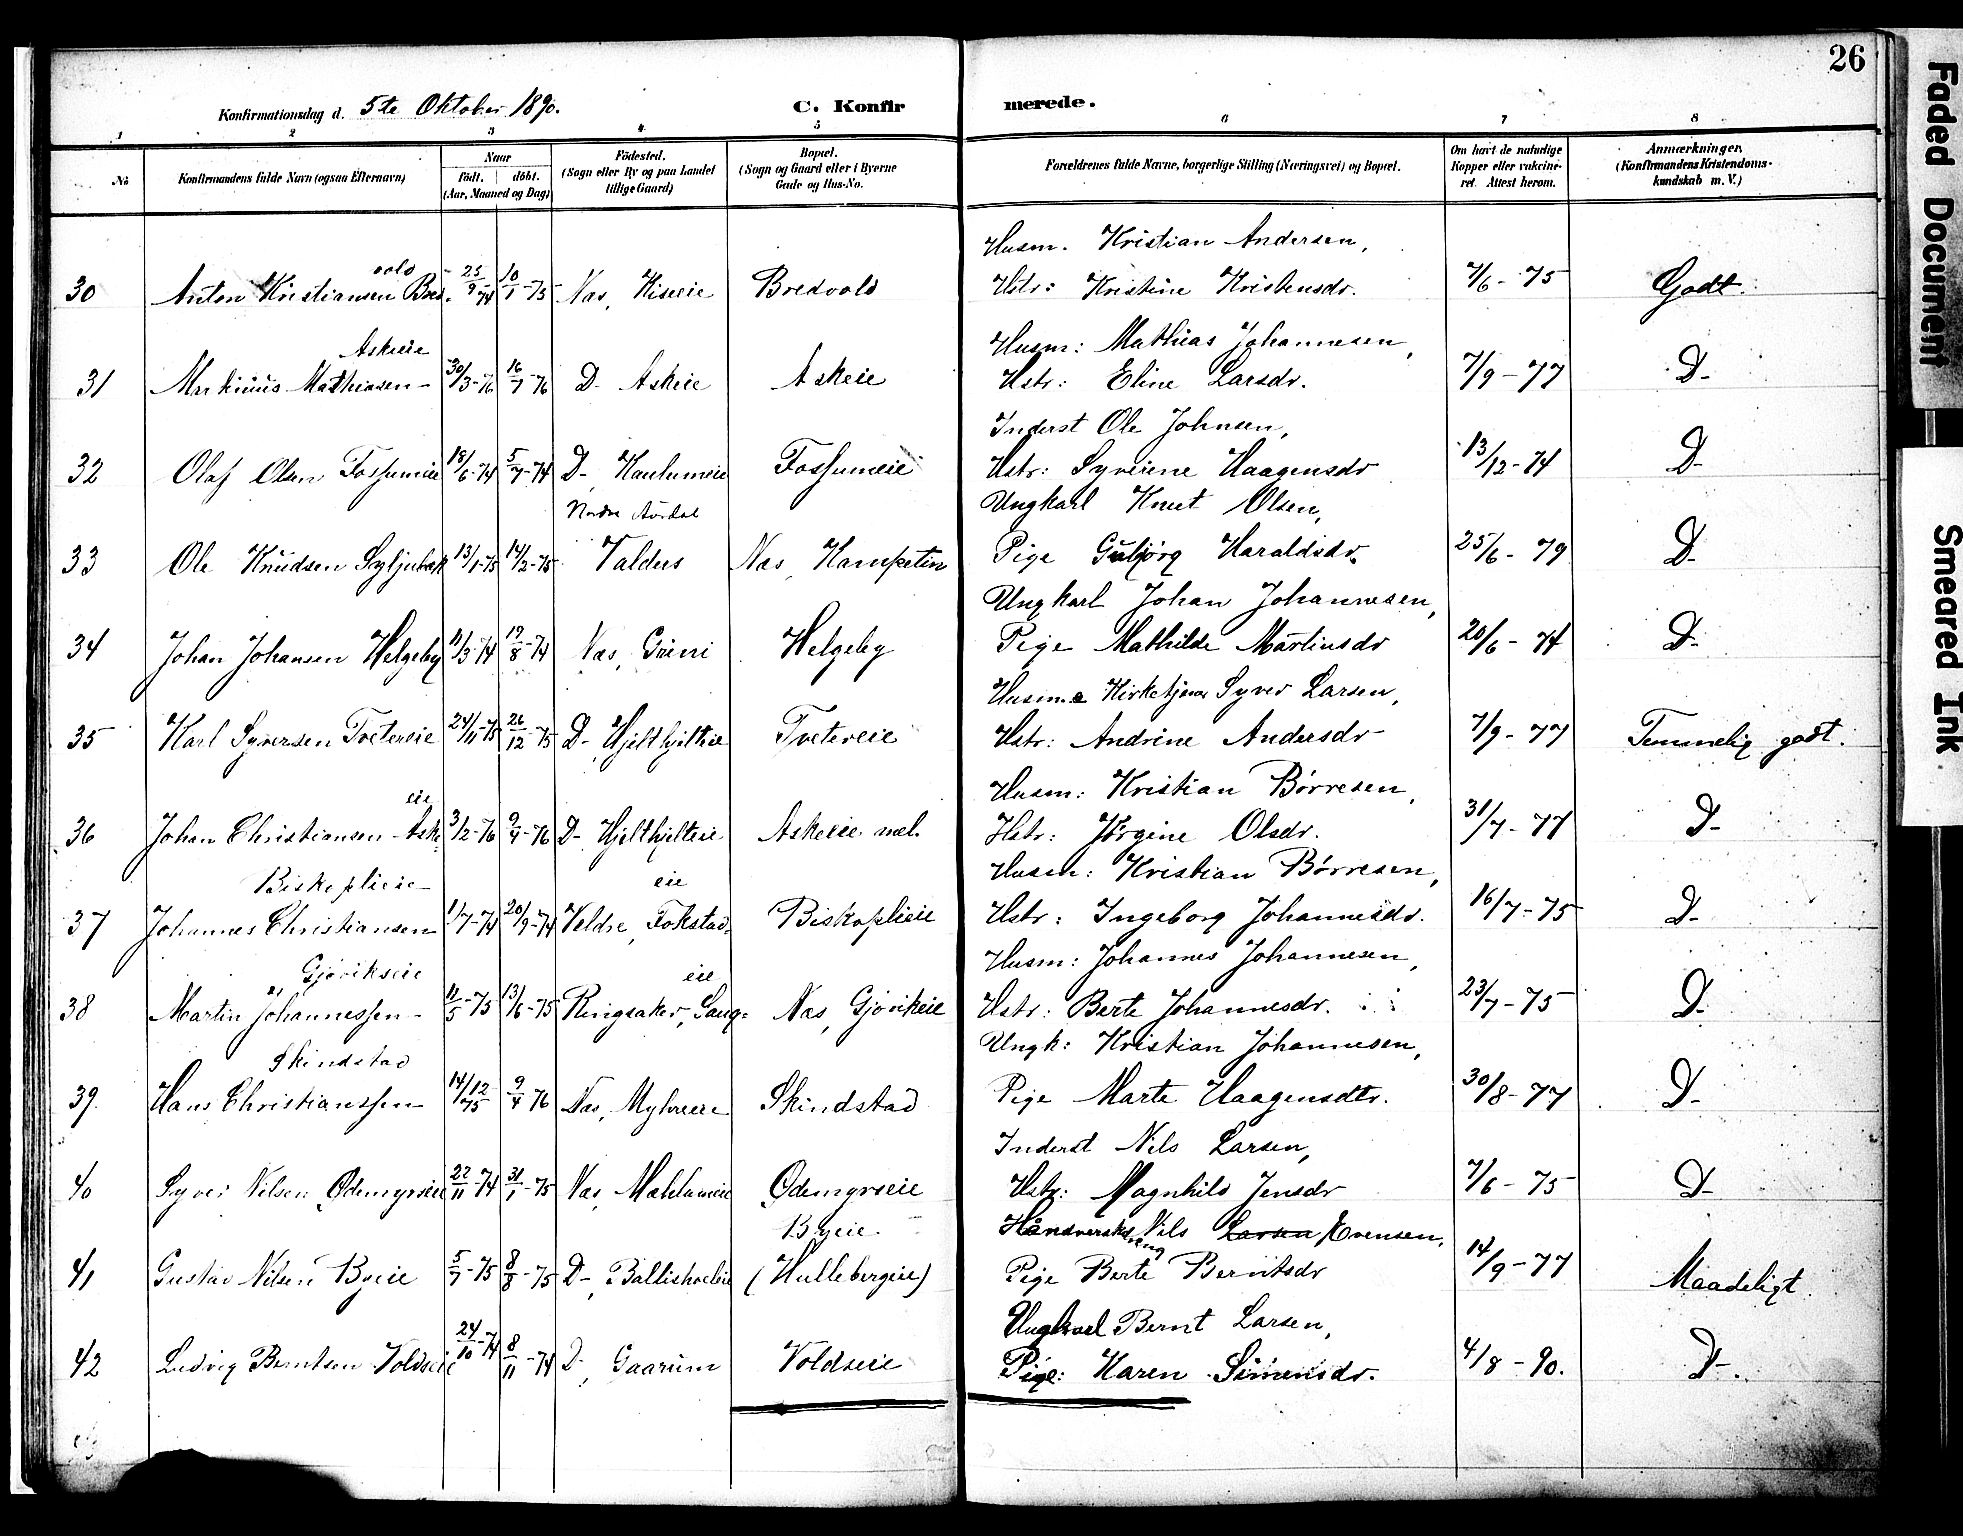 26
Konfirmationsdag d. 5te Oktober 1890.
C. Konfir
merede.
1 2 3 4 5 6 7 8
No
Konfirmandens fulde Navn (ogsaa Efternavn)
Naar
født. døbt.
(Aar, Maaned og Dag)
Fødested.
(Sogn eller By og paa Landet
tillige Gaard)
Bopæl.
(Sogn og Gaard eller i Byerne
Gade og Hus-No.
Forældrenes fulde Navne, borgerlige Stilling (Næringsvei) og Bopæl.
Om havt de naturlige
Kopper eller vakcine-
ret. Attest herom.
Anmærkninger.
(Konfirmandens Kristendoms-
kundskab m. V.)
Husm. Kristian Andersen,
vold
30 Anton Kristiansen Bred- 25/9-74 10/1-75 Næs, Hiseeie Bredvold Hstr: Kristine Kristensdr. 7/6-75 Godt.
Askeie Husm: Mathias Johannesen,
31 Markinus Mathiasen- 30/3-76 16/7-76 D- Askeie Askeie Hstr: Eline Larsdr. 7/9-77 D-
Inderst Ole Johnsen,
32 Olaf Olsen Fossumeie 18/6-74 5/7-74 D- Haulumeie Fossumeie Hstr: Syverine Haagensdr 13/12-74 D-
Nordre Aurdal Ungkarl Knut Olsen,
33 Ole Knudsen Syljubak 13/1-75 14/2-75 Valders Næs, Kampetin Pige Gubjørg Haraldsdr. 25/6-79 D-
Ungkarl Johan Johannesen,
34 Johan Johansen Helgeby 11/3-74 19/8-74 Næs, Grini Helgeby Pige Mathilde Martinsdr 20/6-74 D-
Husm. Kirketjener Syver Larsen,
35 Karl Syversen Tvetereie 24/11-75 26/12-75 D-, Hjelthjelteie Tvetereie Hstr: Andrine Andersdr- 7/9-77 Temmelig godt.
eie Husm: Kristian Børresen,
36 Johan Christiansen Aske- 3/2-76 9/4-76 D- Hjelthjelteie Askeeie mel. Hstr: Jørgine Olsdr. 31/7-77 D-
Biskoplieie- eie Husm: Kristian Børresen,
37 Johannes Christiansen 1/7-74 20/9-74 Veldre, Fokstad- Biskoplieie Hstr: Ingeborg Johannesdr. 16/7-75 D-
Gjøvikseie eie Husm: Johannes Johannesen,
38 Martin Johannessen- 11/5-75 13/6-75 Ringsaker, Gaug- Næs, Gjøvikeie Hstr: Berte Johannesdr. 23/7-75 D-
Skindstad Ungk: Kristian Johannesen,
39. Hans Christianssen- 14/12 75 9/4 76 Næs, Myhreeie Skindstad Pige Marte Haagensdtr. 30/8-77 D-
Inderst Nils Larsen,
40 Syver Nilsen Ødemyrseie 22/11-74 31/1-75 Næs, Mæhlumeie Ødemyrseie Hstr: Magnhild Jensdr 7/6-75 D-
Byeie. Håndverksdreng Nils Larsen Evensen,
41 Gustav Nilsen Byeie 5/7-75 8/8-75 D-, Ballishoeleie (Hullebergeie) Pige Berte Berntsdr 14/9-77 Maadeligt
Ungkarl Bernt Larsen,
42 Ludvig Berntsen Voldseie 24/10-74 8/11-74 D-, Gaarum Voldseie Pige: Karen Simensdr. 4/8-90. D-.
Faded Document
Smeared Ink